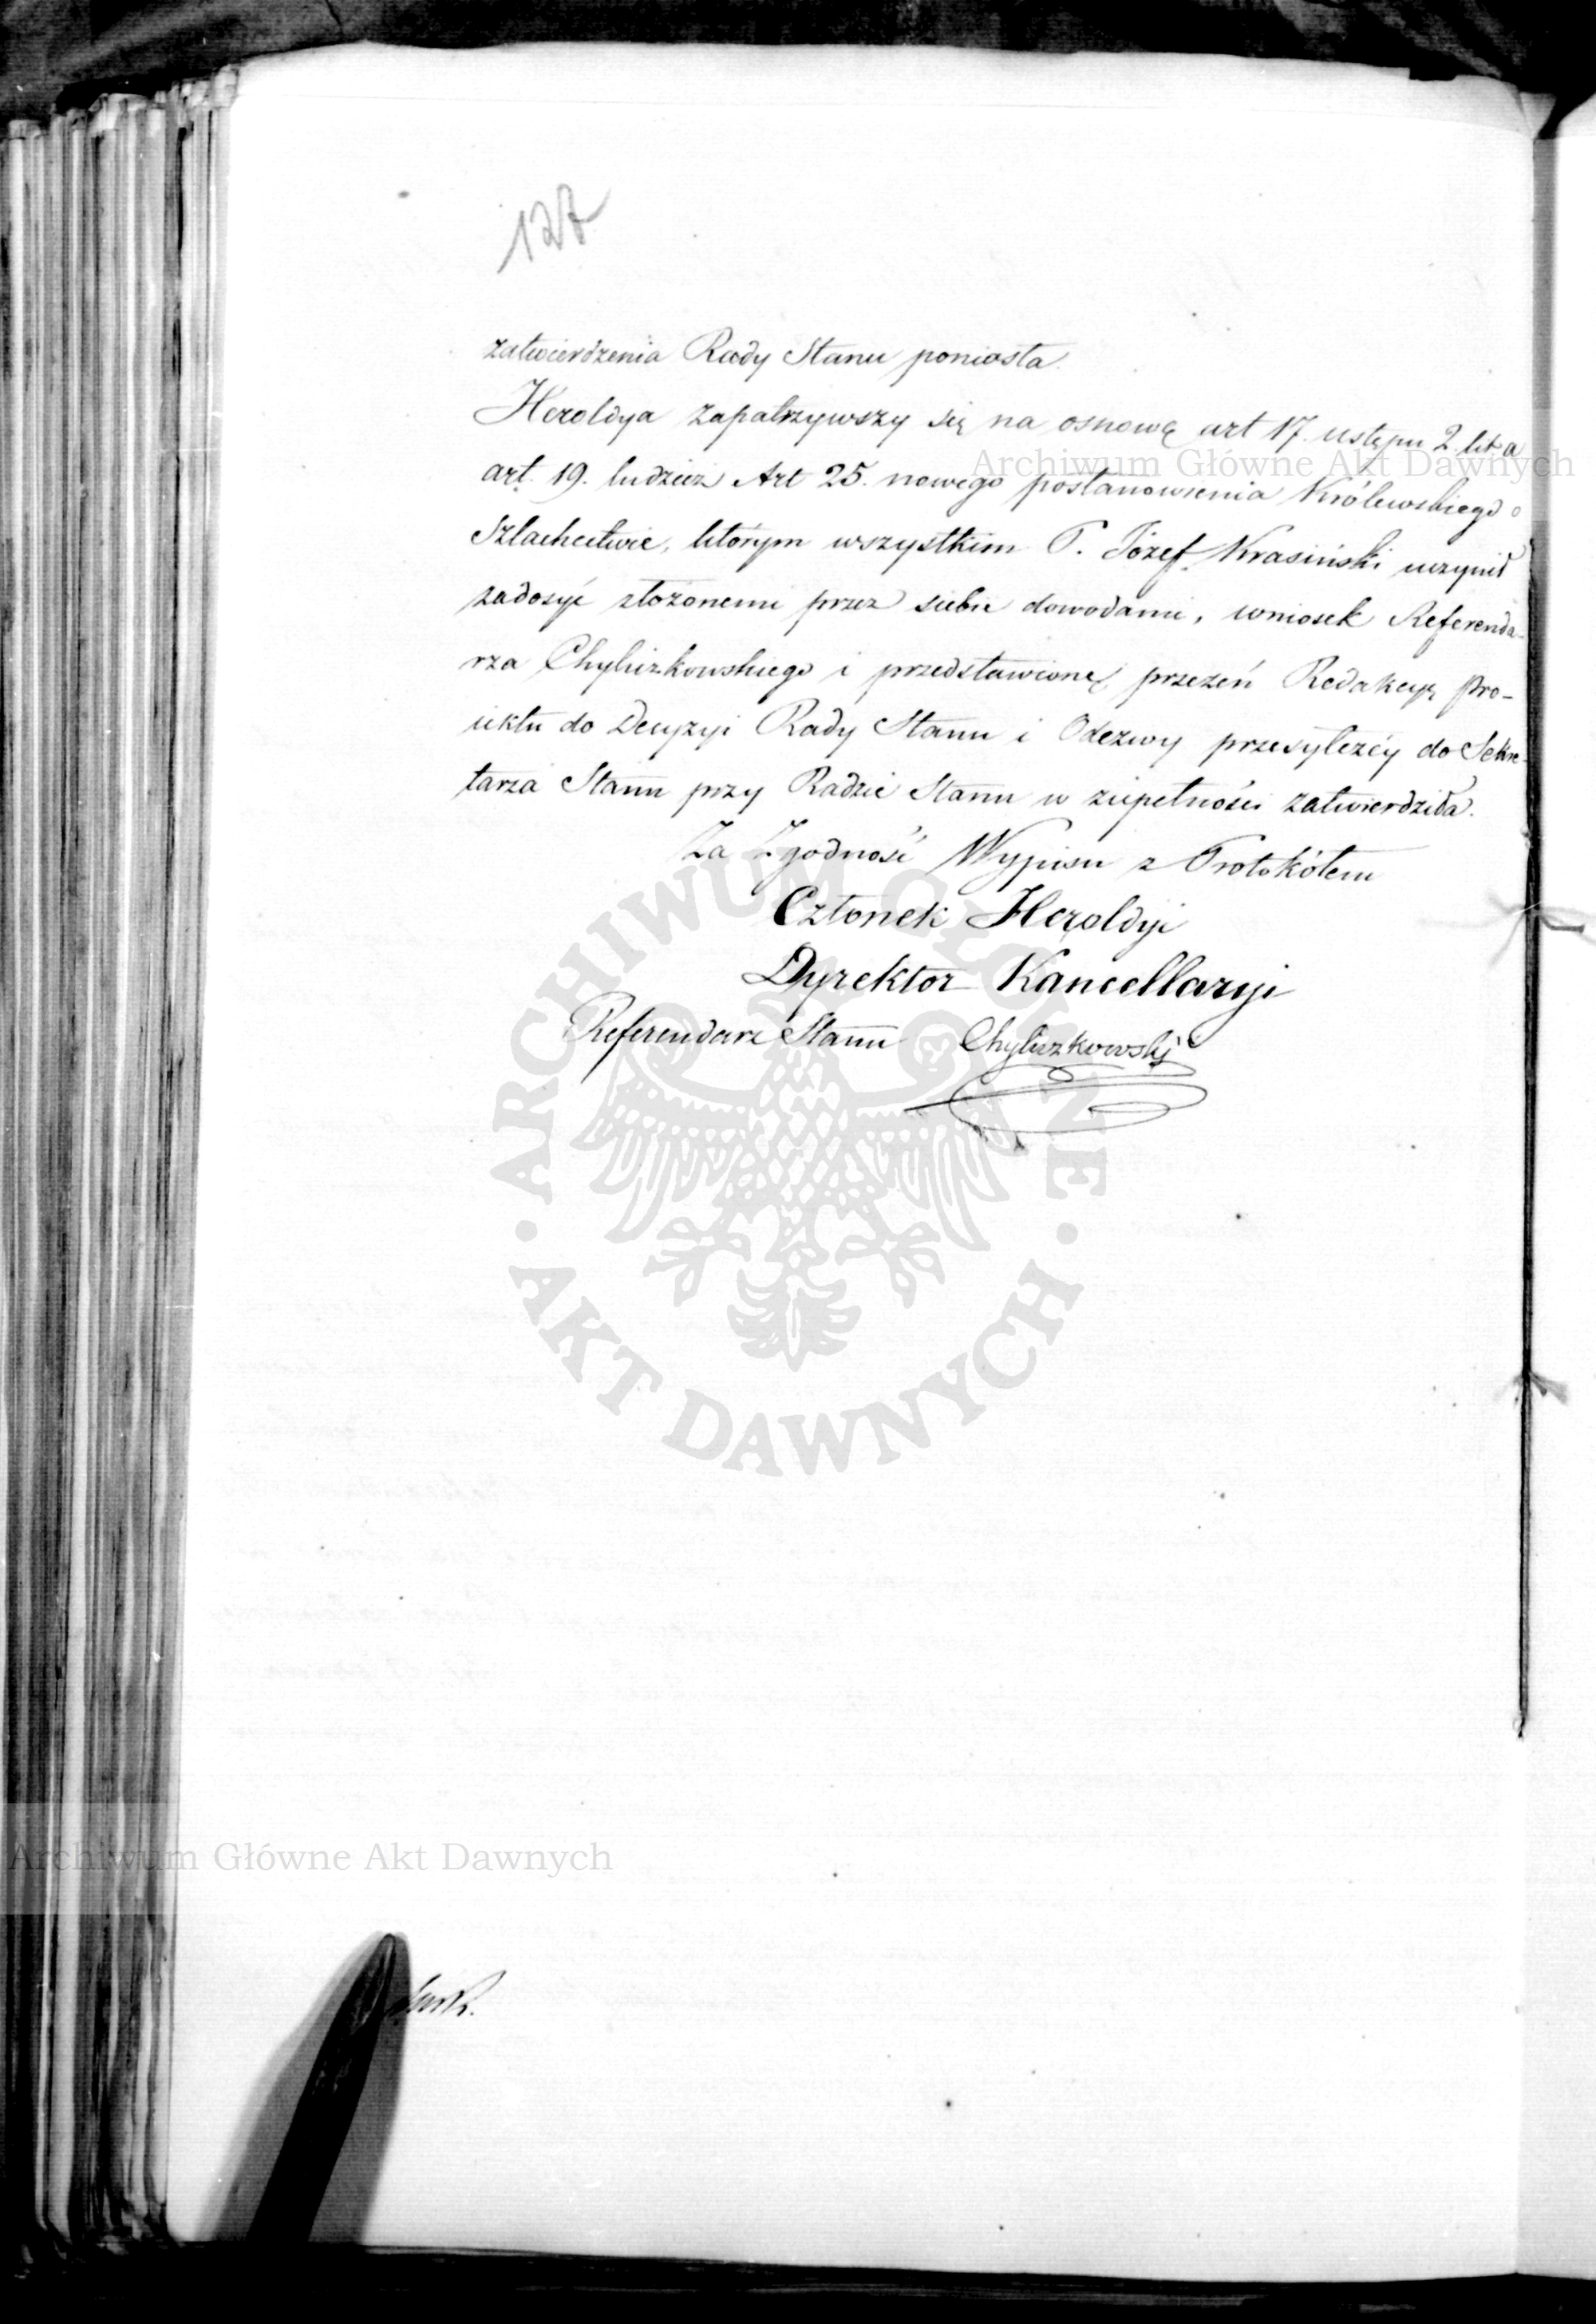 127
zatwierdzenia Rady Stanu poniosła.
Heroldya zapatrzywszy się na osnowę art 17. ustępu 2. lit. a
art. 19. tudzież Art 25. nowego postanowienia Królewskiego o
Szlachectwie, którym wszystkim P. Józef Krasiński uczynił
zadosyć złożonemi przez siebie dowodami, wniosek Referenda-
rza Chyliczkowskiego i przedstawioną przezeń Redakcyę Pro-
iektu do Decyzyi Rady Stanu i Odezwy przesyłczéy do Sekre-
tarza Stanu przy Radzie Stanu w zupełności zatwierdziła.
Za Zgodność Wypisu z Protokółem
Członek Heroldyi
Dyrektor Kancellaryi
Referendarz Stanu Chyliczkowski
Archiwum Główne Akt Dawnych
ARCHIWUM GŁÓWNE
· AKT DAWNYCH ·
Archiwum Główne Akt Dawnych